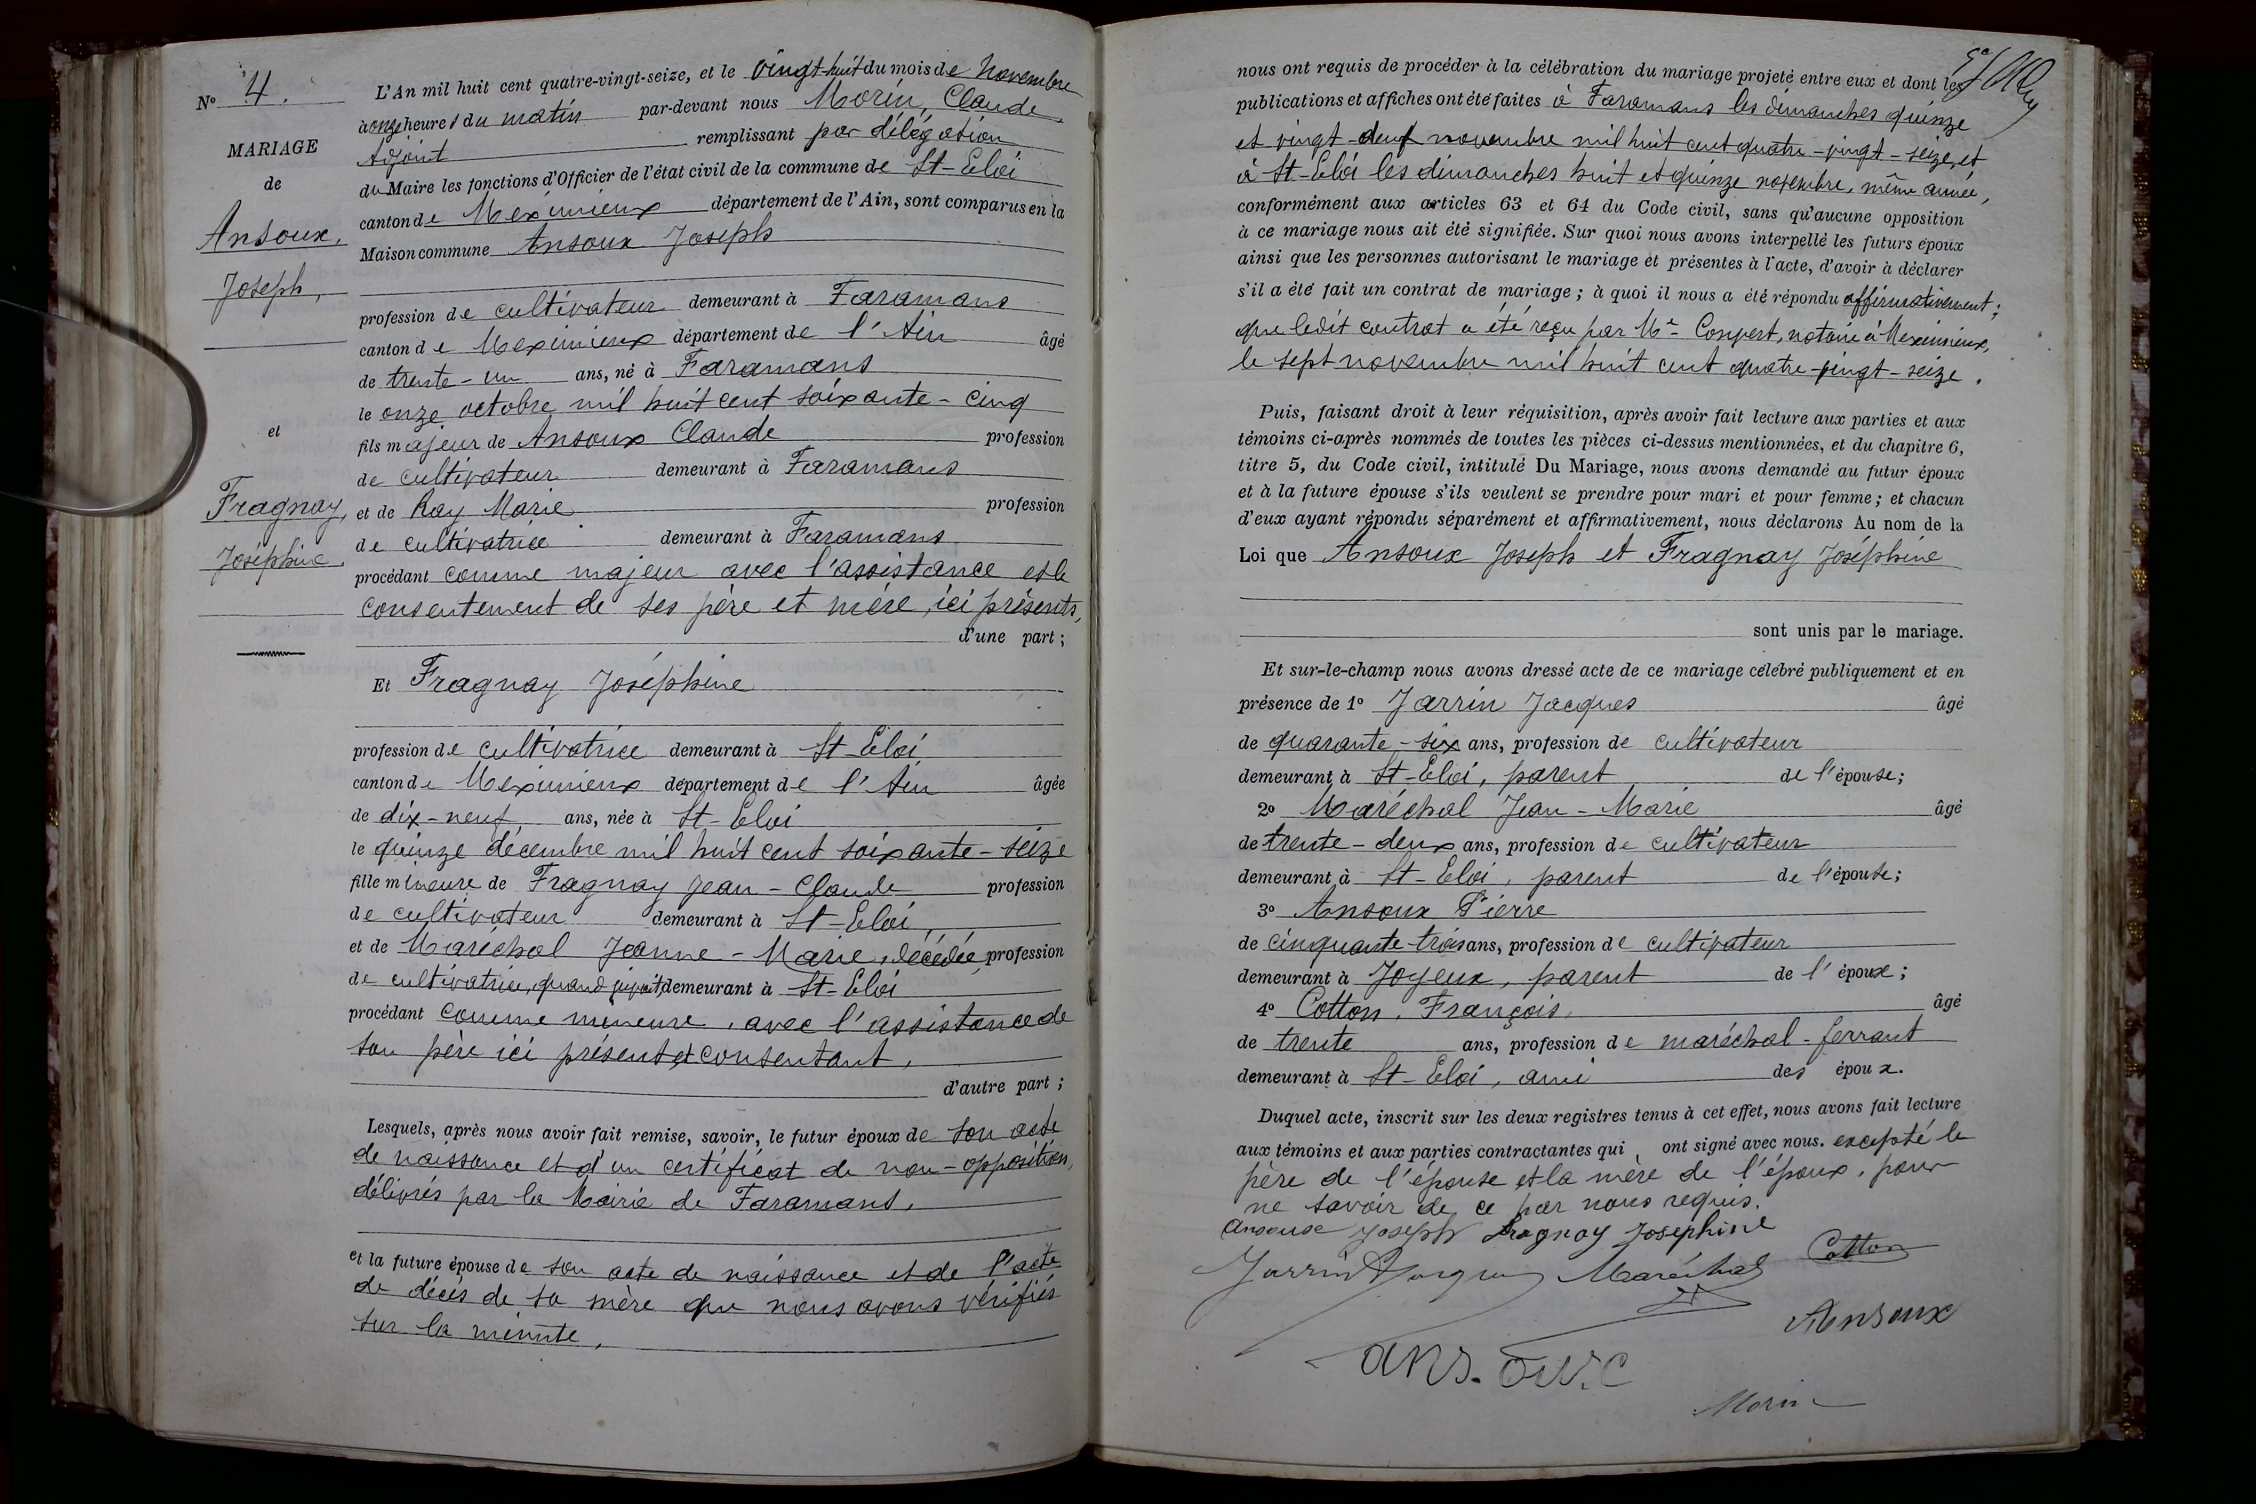 No 4.
MARIAGE
de
Ansoux,
Joseph,
et
Fragnay,
Joséphine.
L'An mil huit cent quatre-vingt-seize, et le vingt-huit du mois de Novembre
à onze heures du matin par-devant nous Morin, Claude
Adjoint remplissant par délégation
du Maire les fonctions d'Officier de l'état civil de la commune de St-Eloi
canton de Meximieux département de l'Ain, sont comparus en la
Maison commune Ansoux Joseph
profession de cultivateur demeurant à Faramans
canton de Meximieux département de l'Ain âgé
de trente-un ans, né à Faramans
le onze octobre mil huit cent soixante-cinq
fils majeur de Ansoux Claude profession
de cultivateur demeurant à Faramans
et de Ray Marie profession
de cultivatrice demeurant à Faramans
procédant comme majeur avec l'assistance et le
consentement de ses père et mère, ici présents,
d'une part;
Et Fragnay Joséphine
profession de cultivatrice demeurant à St-Eloi
canton de Meximieux département de l'Ain âgée
de dix-neuf ans, née à St-Eloi
le quinze décembre mil huit cent soixante-seize
fille mineure de Fragnay Jean-Claude profession
de cultivateur demeurant à St-Eloi,
et de Maréchal Jeanne-Marie, décédée, profession
de cultivatrice, quand vivait, demeurant à St-Eloi
procédant comme mineure, avec l'assistance de
son père ici présent et consentant,
d'autre part;
Lesquels, après nous avoir fait remise, savoir, le futur époux de son acte
de naissance et d'un certificat de non-opposition,
délivrés par la Mairie de Faramans,
et la future épouse de son acte de naissance et de l'acte
de décès de sa mère que nous avons vérifiés
sur la minute,
nous ont requis de procéder à la célébration du mariage projeté entre eux et dont les
publications et affiches ont été faites à Faramans les dimanches quinze
et vingt-deux novembre mil huit cent quatre-vingt-seize, et
à St-Eloi les dimanches huit et quinze novembre, même année,
conformément aux articles 63 et 64 du Code civil, sans qu'aucune opposition
à ce mariage nous ait été signifiée. Sur quoi nous avons interpellé les futurs époux
ainsi que les personnes autorisant le mariage et présentes à l'acte, d'avoir à déclarer
s'il a été fait un contrat de mariage; à quoi il nous a été répondu affirmativement;
que ledit contrat a été reçu par Me notaire à Meximieux,
le sept novembre mil huit cent quatre-vingt-seize.
Puis, faisant droit à leur réquisition, après avoir fait lecture aux parties et aux
témoins ci-après nommés de toutes les pièces ci-dessus mentionnées, et du chapitre 6,
titre 5, du Code civil, intitulé Du Mariage, nous avons demandé au futur époux
et à la future épouse s'ils veulent se prendre pour mari et pour femme; et chacun
d'eux ayant répondu séparément et affirmativement, nous déclarons Au nom de la
Loi que Ansoux Joseph et Fragnay Joséphine
sont unis par le mariage.
Et sur-le-champ nous avons dressé acte de ce mariage célébré publiquement et en
présence de 1o Jarrin Jacques âgé
de quarante-six ans, profession de cultivateur
demeurant à St-Eloi, parent de l'épouse;
2o Maréchal Jean-Marie âgé
de trente-deux ans, profession de cultivateur
demeurant à St-Eloi, parent de l'épouse;
3o Ansoux Pierre
de cinquante-trois ans, profession de cultivateur
demeurant à Joyeux, parent de l'époux;
4o Cotton, François, âgé
de trente ans, profession de maréchal-ferrant
demeurant à St-Eloi, ami des époux.
Duquel acte, inscrit sur les deux registres tenus à cet effet, nous avons fait lecture
aux témoins et aux parties contractantes qui ont signé avec nous. excepté le
père de l'épouse et la mère de l'époux, pour
ne savoir de ce par nous requis.
ansoux Joseph fragnay Josephine
Jarrin Jacques Maréchal Cotton
Ansoux
ans.oux.C
Morin